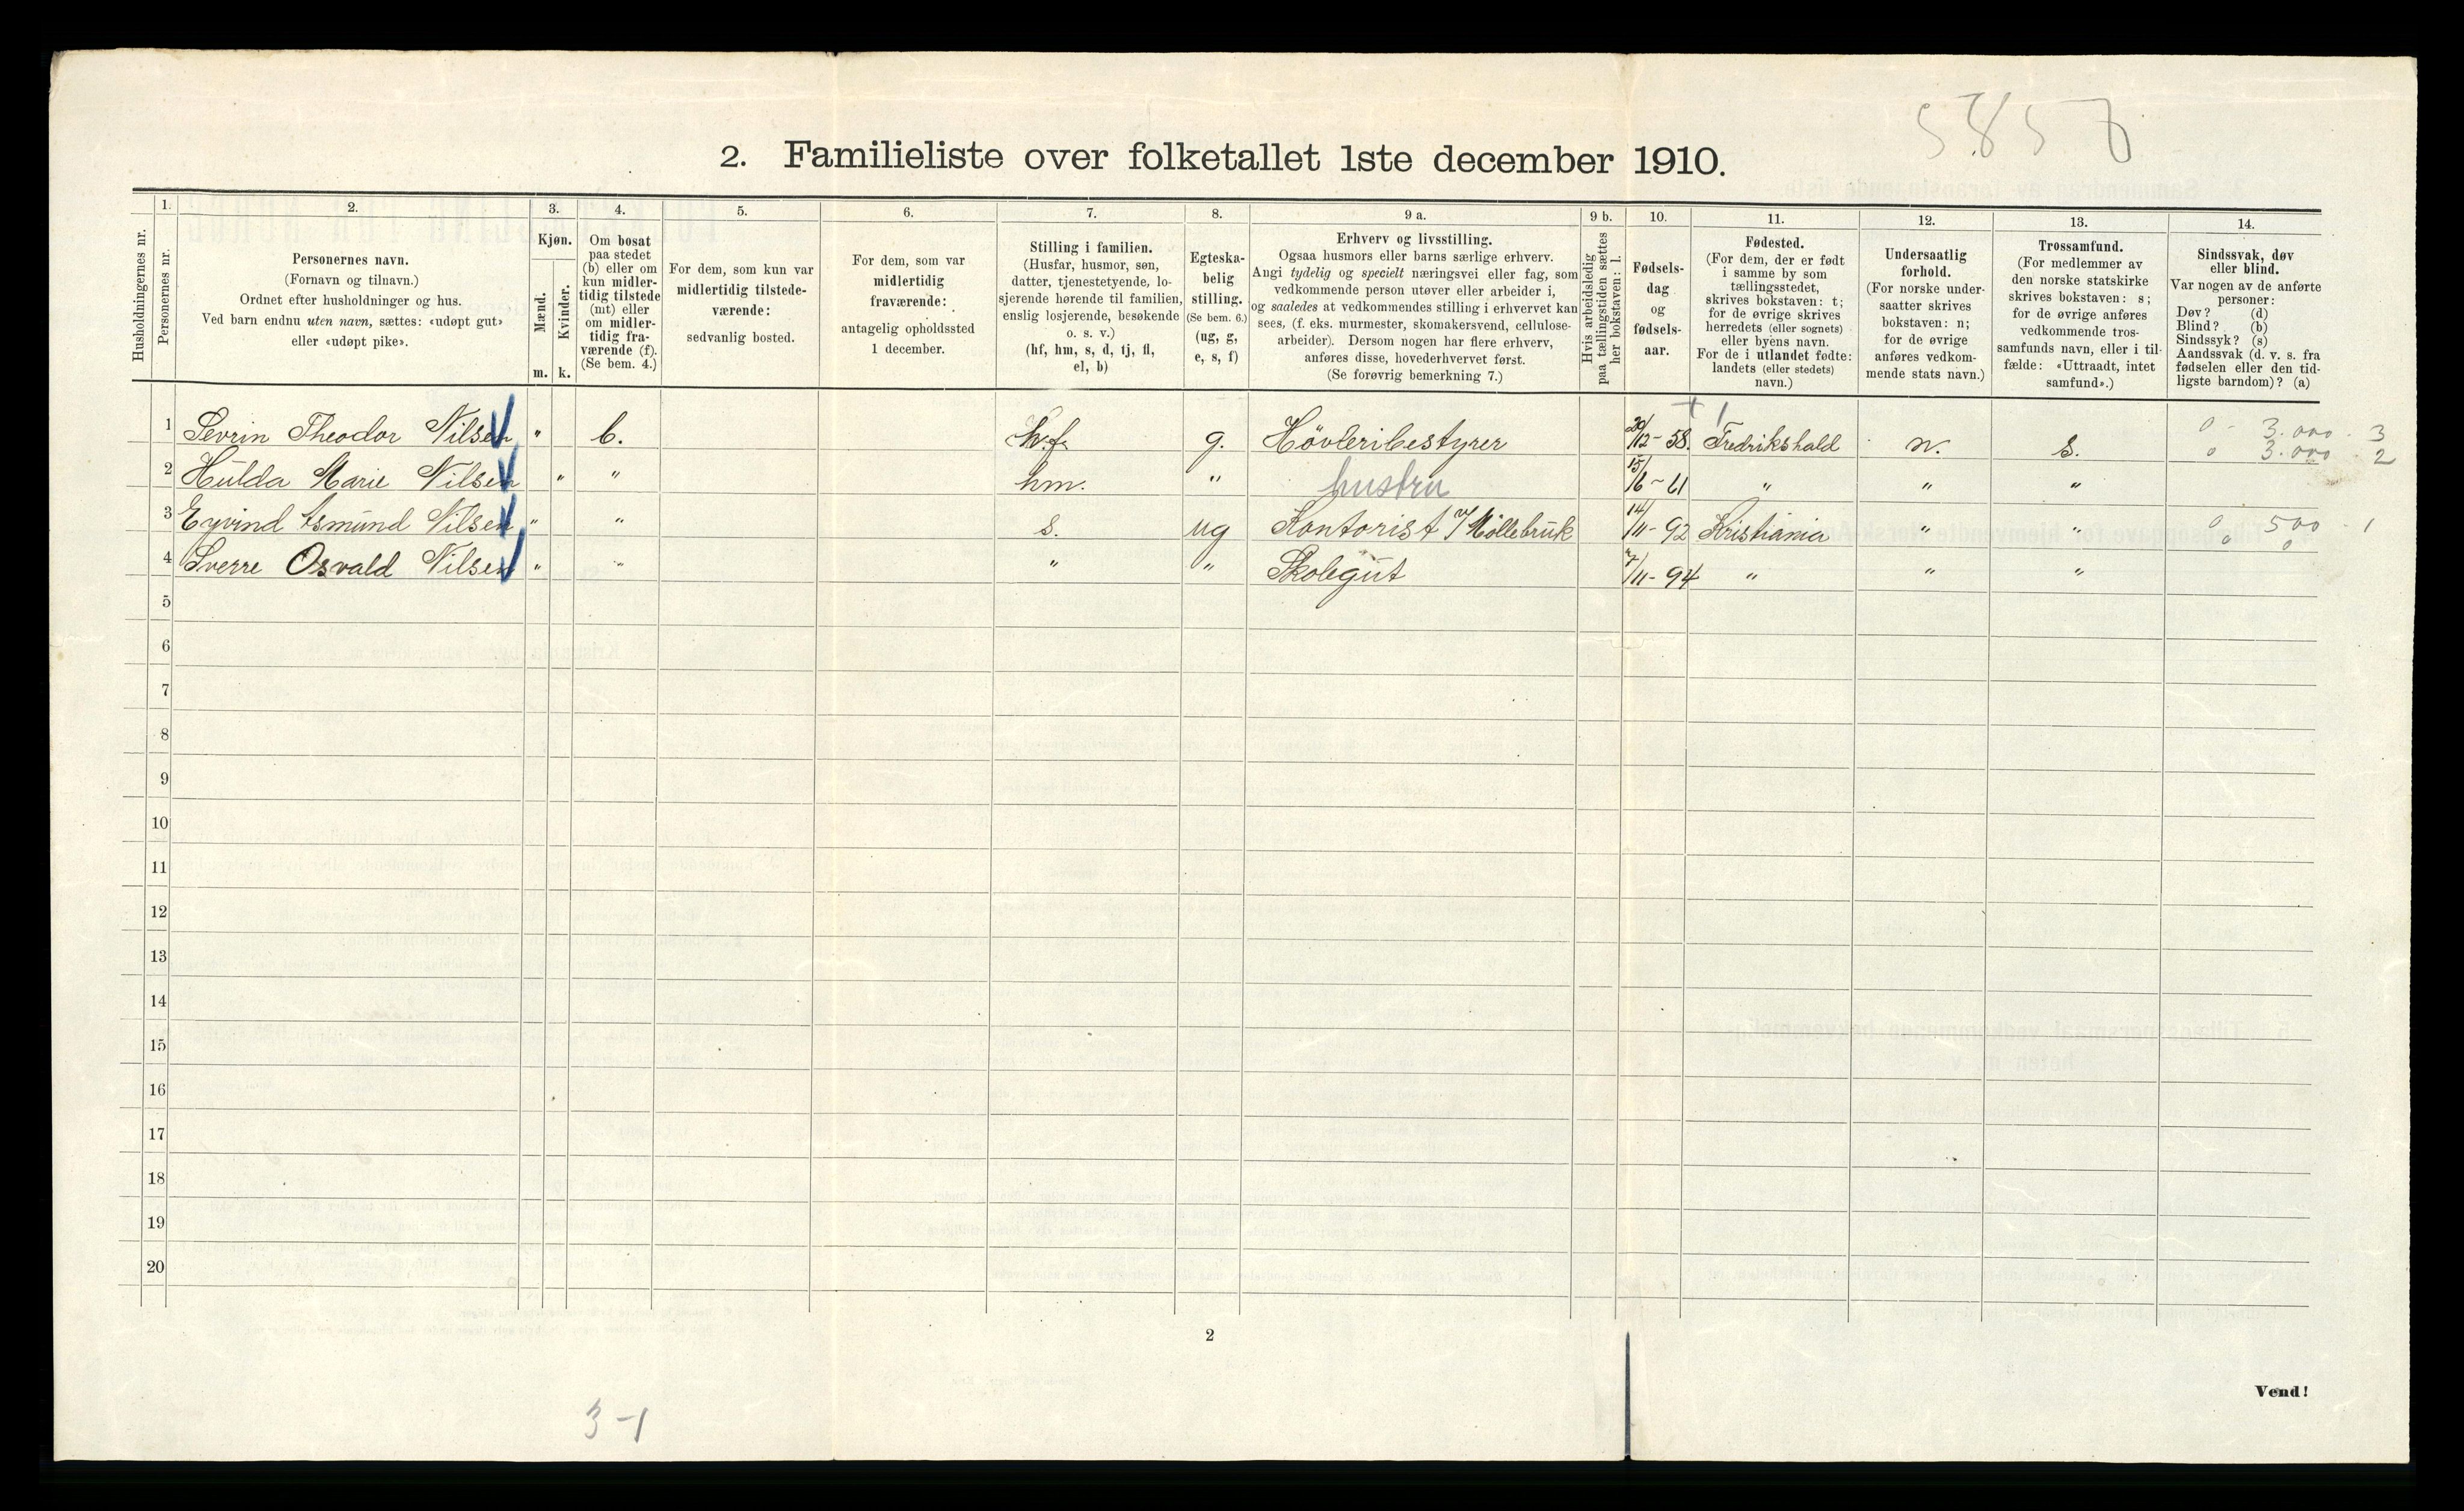 5858
2. Familieliste over folketallet 1ste december 1910.
Husholdningernes nr.
1.
Personernes nr.
2.
Personernes navn.
(Fornavn og tilnavn.)
Ordnet efter husholdninger og hus.
Ved barn endnu uten navn, sættes: «udøpt gut»
eller «udøpt pike».
3.
Kjøn.
Mænd.
Kvinder.
m. k.
4.
Om bosat
paa stedet
(b) eller om
kun midler-
tidig tilstede
(mt) eller
om midler-
tidig fra-
værende (f).
(Se bem. 4.)
5.
For dem, som kun var
midlertidig tilstede-
værende:
sedvanlig bosted.
6.
For dem, som var
midlertidig
fraværende:
antagelig opholdssted
1 december.
7.
Stilling i familien.
(Husfar, husmor, søn,
datter, tjenestetyende, lo-
sjerende hørende til familien,
enslig losjerende, besøkende
o. s. v.)
(hf, hm, s, d, tj, fl,
el, b)
8.
Egteska-
belig
stilling.
(Se bem. 6.)
(ug, g,
e, s, f)
9 a.
Erhverv og livsstilling.
Ogsaa husmors eller barns særlige erhverv.
Angi tydelig og specielt næringsvei eller fag, som
vedkommende person utøver eller arbeider i,
og saaledes at vedkommendes stilling i erhvervet kan
sees, (f. eks. murmester, skomakersvend, cellulose-
arbeider). Dersom nogen har flere erhverv,
anføres disse, hovederhvervet først.
(Se forøvrig bemerkning 7.)
9 b.
Hvis arbeidsledig
paa tællingstiden sættes
her bokstaven: l.
10.
Fødsels-
dag
og
fødsels-
aar.
11.
Fødested.
(For dem, der er født
i samme by som
tællingsstedet,
skrives bokstaven: t;
for de øvrige skrives
herredets (eller sognets)
eller byens navn.
For de i utlandet fødte:
landets (eller stedets)
navn.)
12.
Undersaatlig
forhold.
(For norske under-
saatter skrives
bokstaven: n;
for de øvrige
anføres vedkom-
mende stats navn.)
13.
Trossamfund.
(For medlemmer av
den norske statskirke
skrives bokstaven: s;
for de øvrige anføres
vedkommende tros-
samfunds navn, eller i til-
fælde: «Uttraadt, intet
samfund».)
14.
Sindssvak, døv
eller blind.
Var nogen av de anførte
personer:
Døv? (d)
Blind? (b)
Sindssyk? (s)
Aandssvak (d. v. s. fra
fødselen eller den tid-
ligste barndom)? (a)
1 Sevrin Theodor Nilsen " b. h.f. g. Høvleribestyrer 20/12-58. Fredrikshald n. s. 0 - 3.000 - 3
2 Hulda Marie Nilsen " " hm. " hustru 15/6-61 " " " 0 3.000 - 2
3 Eyvind Asmund Nilsen " " s. ug Kontorist v/Möllebruk 14/11-92 Kristiania " " 0 500 - 1
4 Sverre Osvald Nilsen " " " " Skolegut 7/11-94 " " " 0 0
5
6
7
8
9
10
11
12
13
14
15
16
17
18
19
20
2
Vend!
3-1